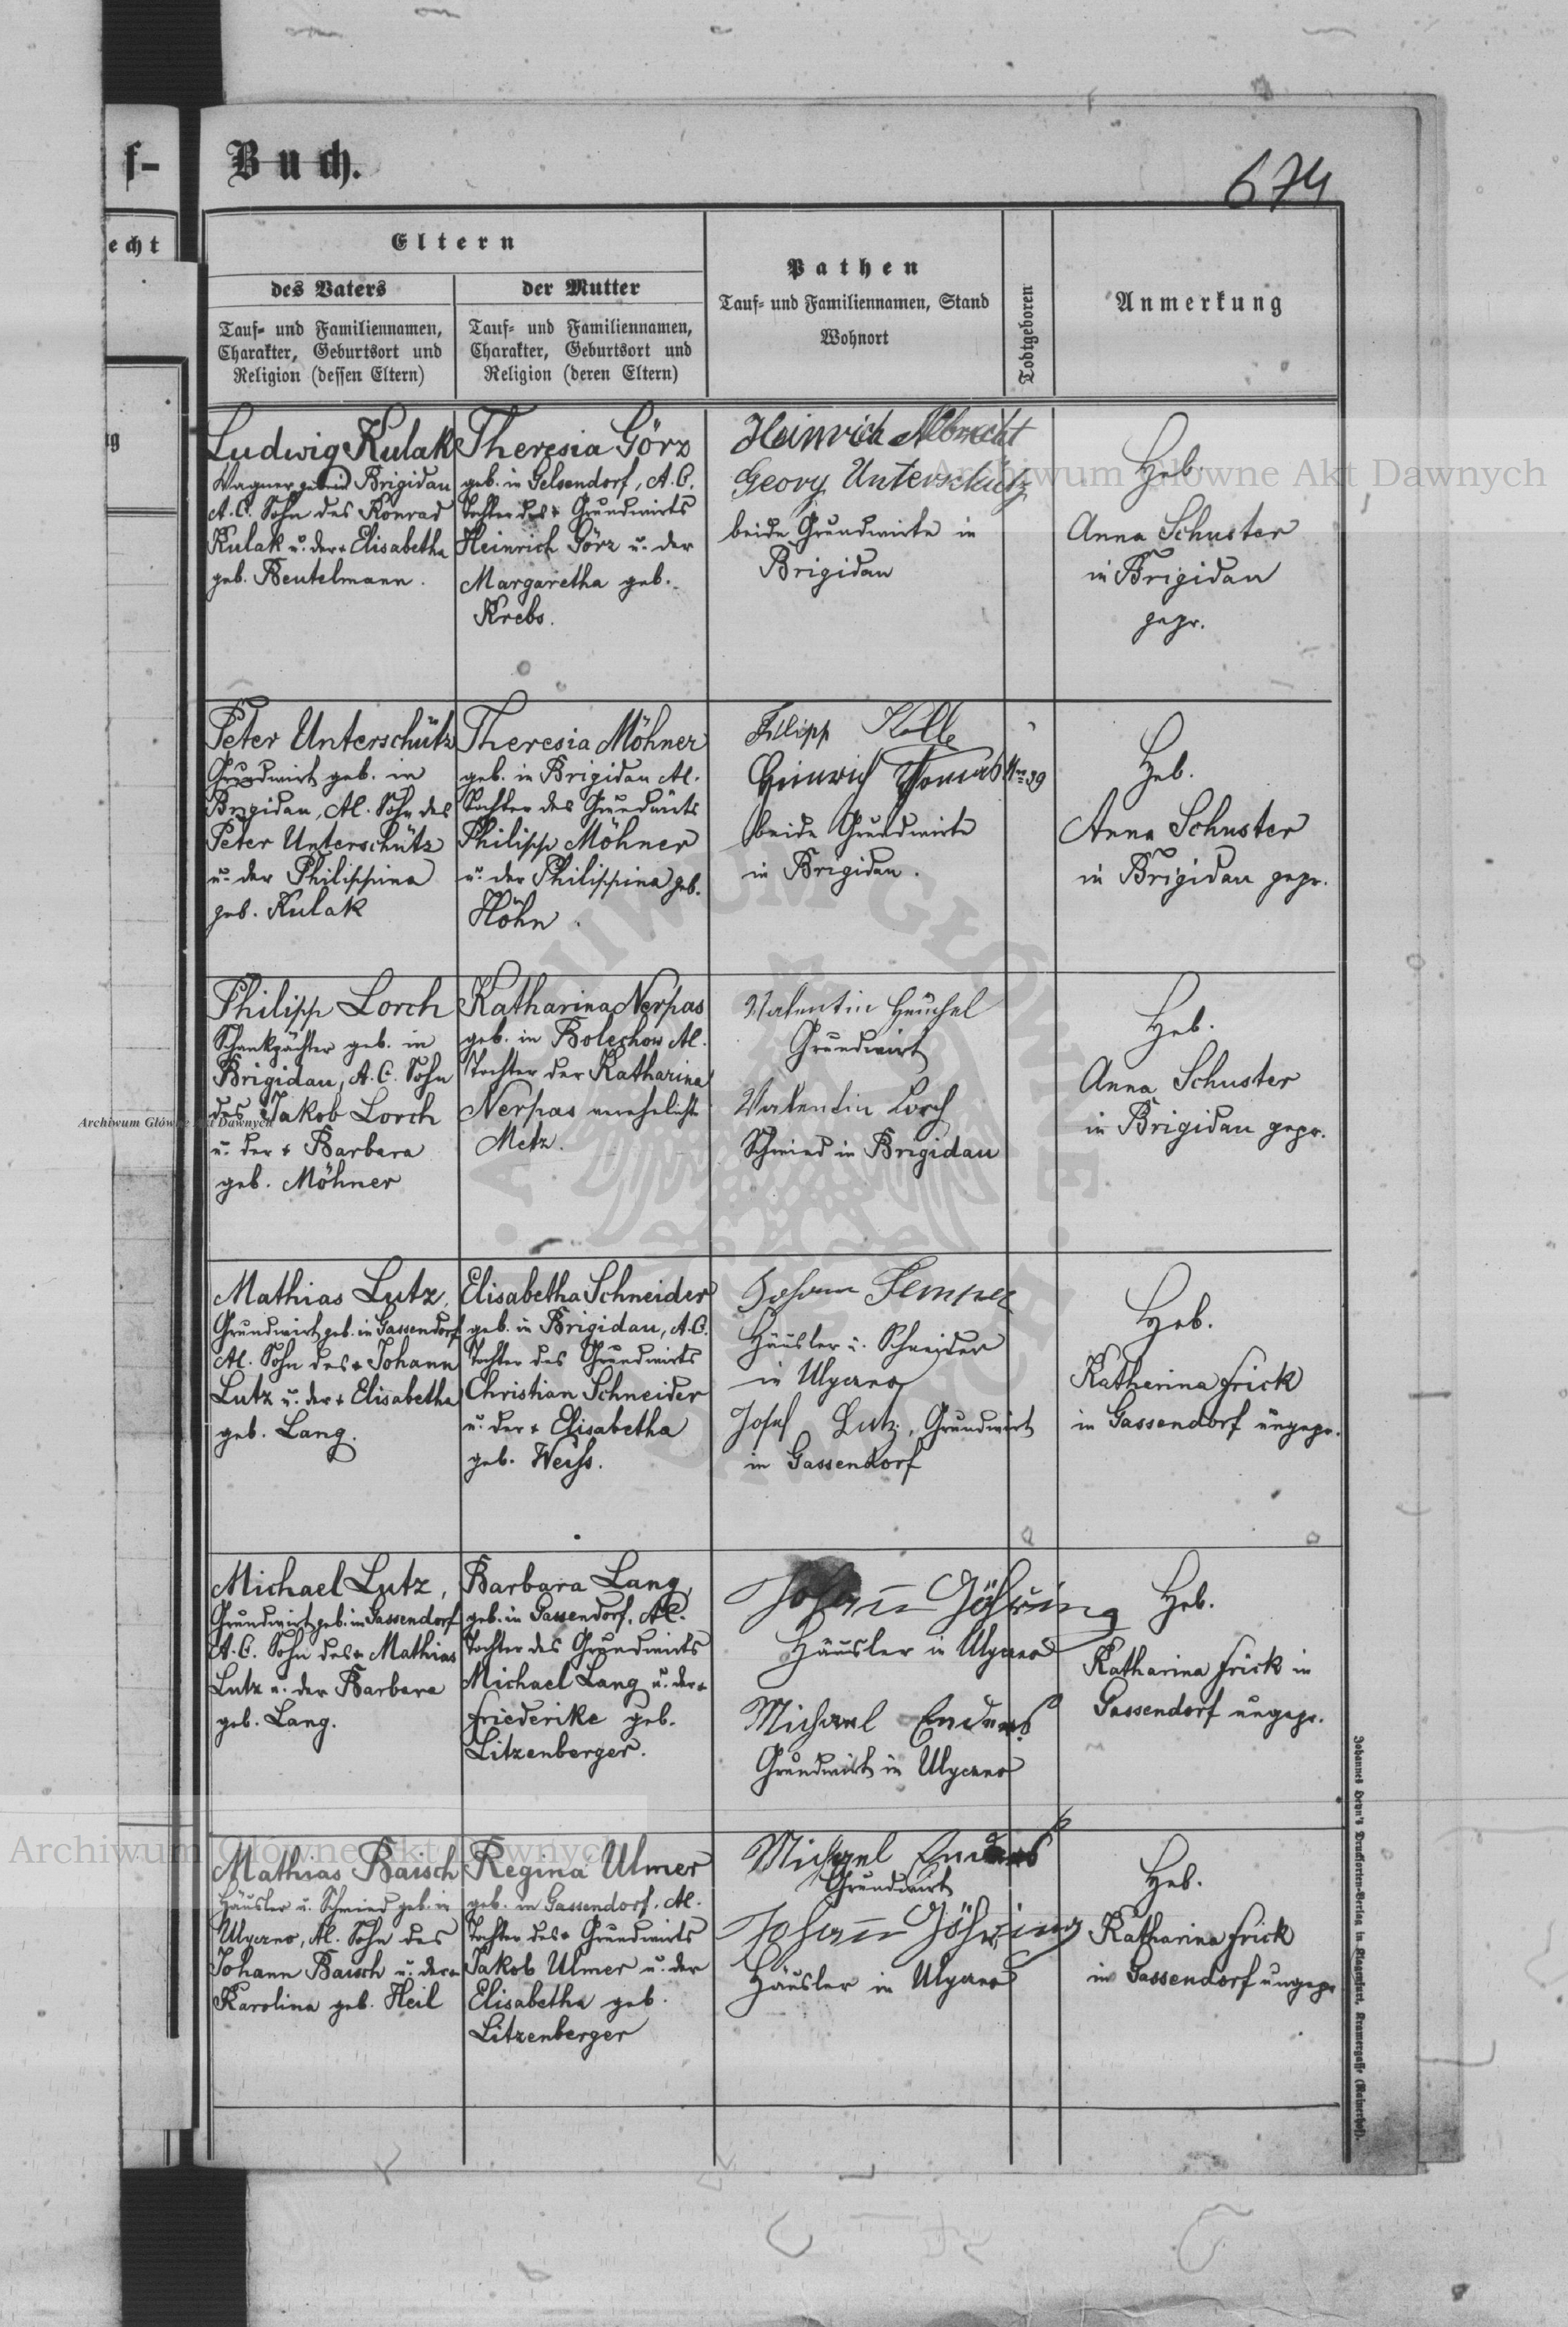 f-
Buch.
674
echt
Eltern
des Vaters
der Mutter
Tauf- und Familiennamen,
Charakter, Geburtsort und
Religion (dessen Eltern)
Tauf- und Familiennamen,
Charakter, Geburtsort und
Religion (deren Eltern)
Pathen
Tauf- und Familiennamen, Stand
Wohnort
Todtgeboren
Anmerkung
Ludwig Kulak
Wagner geb. in Brigidau
A. C. Sohn des Konrad
Kulak u. der + Elisabetha
geb. Beutelmann.
Theresia Görz
geb. in Gelsendorf, A. C.
Tochter des + Grundwirts
Heinrich Görz u. der
Margaretha geb.
Krebs.
Heinrich Albrecht
Georg Unterschütz
beide Grundwirte in
Brigidau
Heb.
Anna Schuster
in Brigidau
gepr.
Peter Unterschütz
Grundwirt geb. in
Brigidau, AC. Sohn des
Peter Unterschütz
u. der Philippina
geb. Kulak
Theresia Möhner
geb. in Brigidau AC.
Tochter des Grundwirts
Philipp Möhner
u. der Philippina geb.
Höhn.
Filipp Kolb
Heinrich Thomas Nro 39
beide Grundwirte
in Brigidau.
Heb.
Anna Schuster
in Brigidau gepr.
Philipp Lorch
Schankpächter geb. in
Brigidau, A. C. Sohn
des + Jakob Lorch
u. der + Barbara
geb. Möhner
Katharina Nerpas
geb. in Bolechow AC.
Tochter der Katharina
Nerpas verehelichte
Metz.
Valentin Heuchel
Grundwirt
Valentin Lorch
Schmied in Brigidau
Heb.
Anna Schuster
in Brigidau gepr.
Mathias Lutz,
Grundwirt geb. in Gassendorf
AC. Sohn des + Johann
Lutz u. der + Elisabetha
geb. Lang.
Elisabetha Schneider
geb. in Brigidau, A. C.
Tochter des Grundwirts
Christian Schneider
u. der + Elisabetha
geb. Weiss.
Johann
Häusler u. Schneider
in Ugarno
Josef Lutz, Grundwirt
in Gassendorf
Heb.
Katharina Frick
in Gassendorf ungepr.
Michael Lutz,
Grundwirt geb. in Gassendorf
A. C. Sohn des + Mathias
Lutz u. der Barbara
geb. Lang.
Barbara Lang,
geb. in Gassendorf, AC.
Tochter des Grundwirts
Michael Lang u. der +
Friederike geb.
Litzenberger.
Johann Göhring
Häusler in Ulyczno
Michael Enders
Grundwirt in Ulyczno
Heb.
Katharina Frick in
Gassendorf ungepr.
Mathias Baisch
Häusler u. Schmied geb. in
Ulyczno, AC. Sohn des
Johann Baisch u. der +
Karolina geb. Heil
Regina Ulmer
geb. in Gassendorf, AC.
Tochter des + Grundwirts
Jakob Ulmer u. der
Elisabetha geb.
Litzenberger
Michael Enders
Grundwirt
Johann Göhring
Häusler in Ulyczno
Heb.
Katharina Frick
in Gassendorf ungepr.
Johannes Heyn's Drucksorten-Verlag in Klagenfurt, Kramergasse (Rainerhof).
Archiwum Główne Akt Dawnych
Archiwum Główne Akt Dawnych
Archiwum Główne Akt Dawnych